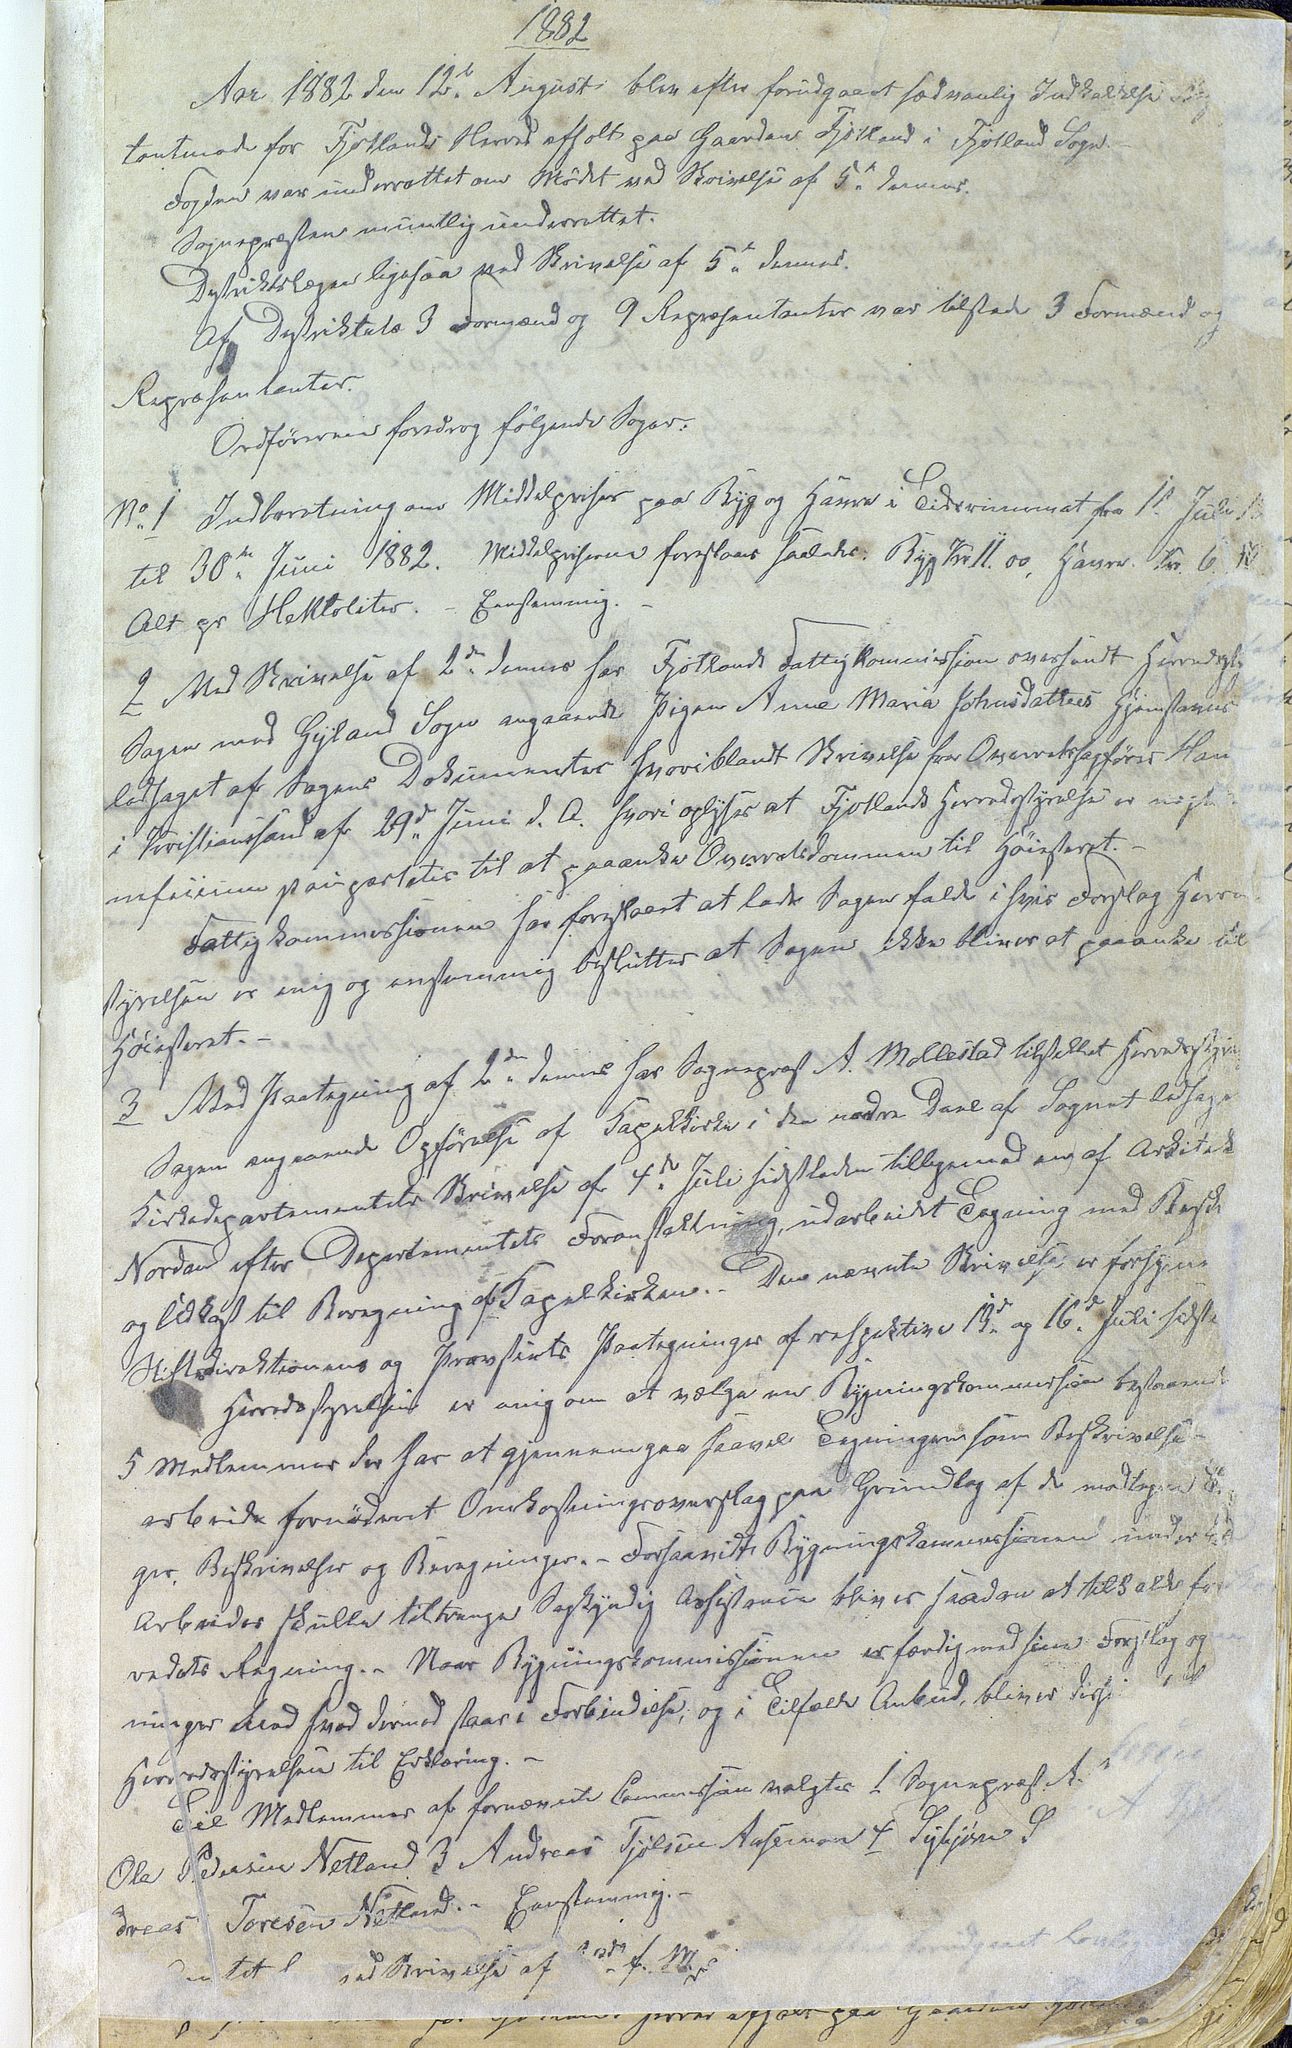 1882
Aar 1882 den 12te August blev efter forudgaaet sædvanlig Indkaldelse
tantmøde for Fjotlands Herred afholt paa Gaarden Fjotland i Fjotland Sogn. –
Fogden var underrettet om Mødet ved Skrivelse af 5te dennes.
Sognepræsten mundtlig underrettet.
Distriktslægen ligesaa ved Skrivelse af 5te dennes.
Af Distriktets 3 Formænd og 9 Repræsentanter var tilstede 3 Formænd og
Repræsentanter.
Ordføreren foredrog følgende Sager:
No 1 Indberetning om Middelpriser paa Byg og Havre i Tidsrummet fra 1ste Juli
til 30te Juni 1882. Middelpriserne foreslaaes saaledes: Byg Kr 11.00, Havre Kr. 6.
Alt pr Hektoliter. – Eenstemmig. –
2 Med Skrivelse af 2den dennes har Fjotlands Fattigkommission oversendt
Sagen med Gyland Sogn angaaende Pigen Anne Maria Johnsdatters Hjemstavns
ledsaget af Sagens Dokumenter hvoriblandt Skrivelse fra Overretssagfører Han
i Kristianssand af 29de Juni d. A. hvori oplyses at Fjotlands Herredsstyrelse er
beneficium paupertatis til at paaanke Overretsdommen til Høiesteret. –
Fattigkommissionen har foreslaaet at lade Sagen falde i hvis Forslag Herre
styrelsen er enig og enstemmig beslutter at Sagen ikke bliver at paaanke til
Høiesteret. –
3 Med Paategning af 2den dennes har Sognepræst A. Mollestad tilstillet Herredsstyre
Sagen angaaende Opførelse af Kapelkirke i den nedre Deel af Sognet ledsage
Kirkedepartementets Skrivelse af 4de Juli sidstleden tilligemed en af Arkitekt
Nordan efter Departementets Foranstaltning, udarbeidet Tegning med Besk
og Udkast til Beregning af Kapelkirken. – Den nævnte Skrivelse er forsyne
Stiftsdirektionens og Provstiets Paategninger af respektive 13de og 16de Juli sidstl
Herredsstyrelsen er enig om at vælge en Bygningskommission bestaaende
5 Medlemmer der har at gjennemgaa saavel Tegningen som Beskrivelse
arbeide fornødent Omkostningsoverslag paa Grundlag af de modtagne
ger, Beskrivelser og Beregninger. – Forsaavidt Bygningskommissionen under
Arbeider skulle tiltrænge Sagkyndig Assistance bliver saadan at tilkalde for
redets Regning. – Naar Bygningskommissionen er færdig med sine Forslag og
ninger med hvad dermed staar i Forbindelse, og i Tilfælde Anbud, bliver disse
Herredsstyrelsen til Erklæring. –
Til Medlemmer af fornævnte Commission valgtes 1 Sognepræst A.
Ola Pedersen Netland 3 Andreas Fjolsen 4
dreas Toresen Netland. – Eenstemmig. –
ved Skrivelse af